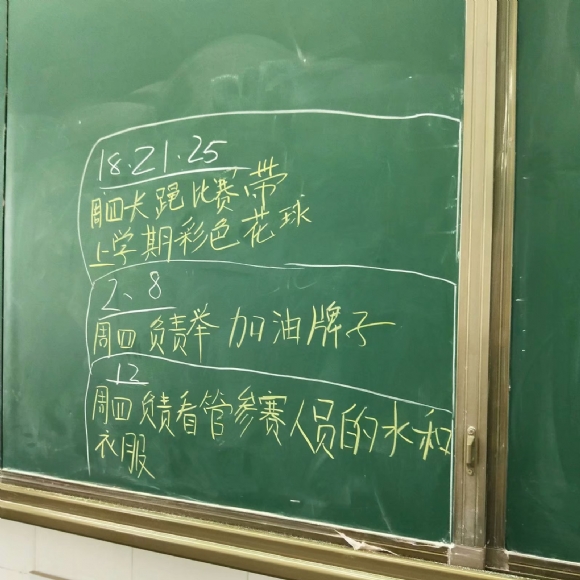 18.21.25
周四长跑比赛带
上学期彩色花球
2、8
周四负责举加油牌子
12
周四负责看管参赛人员的水和
衣服